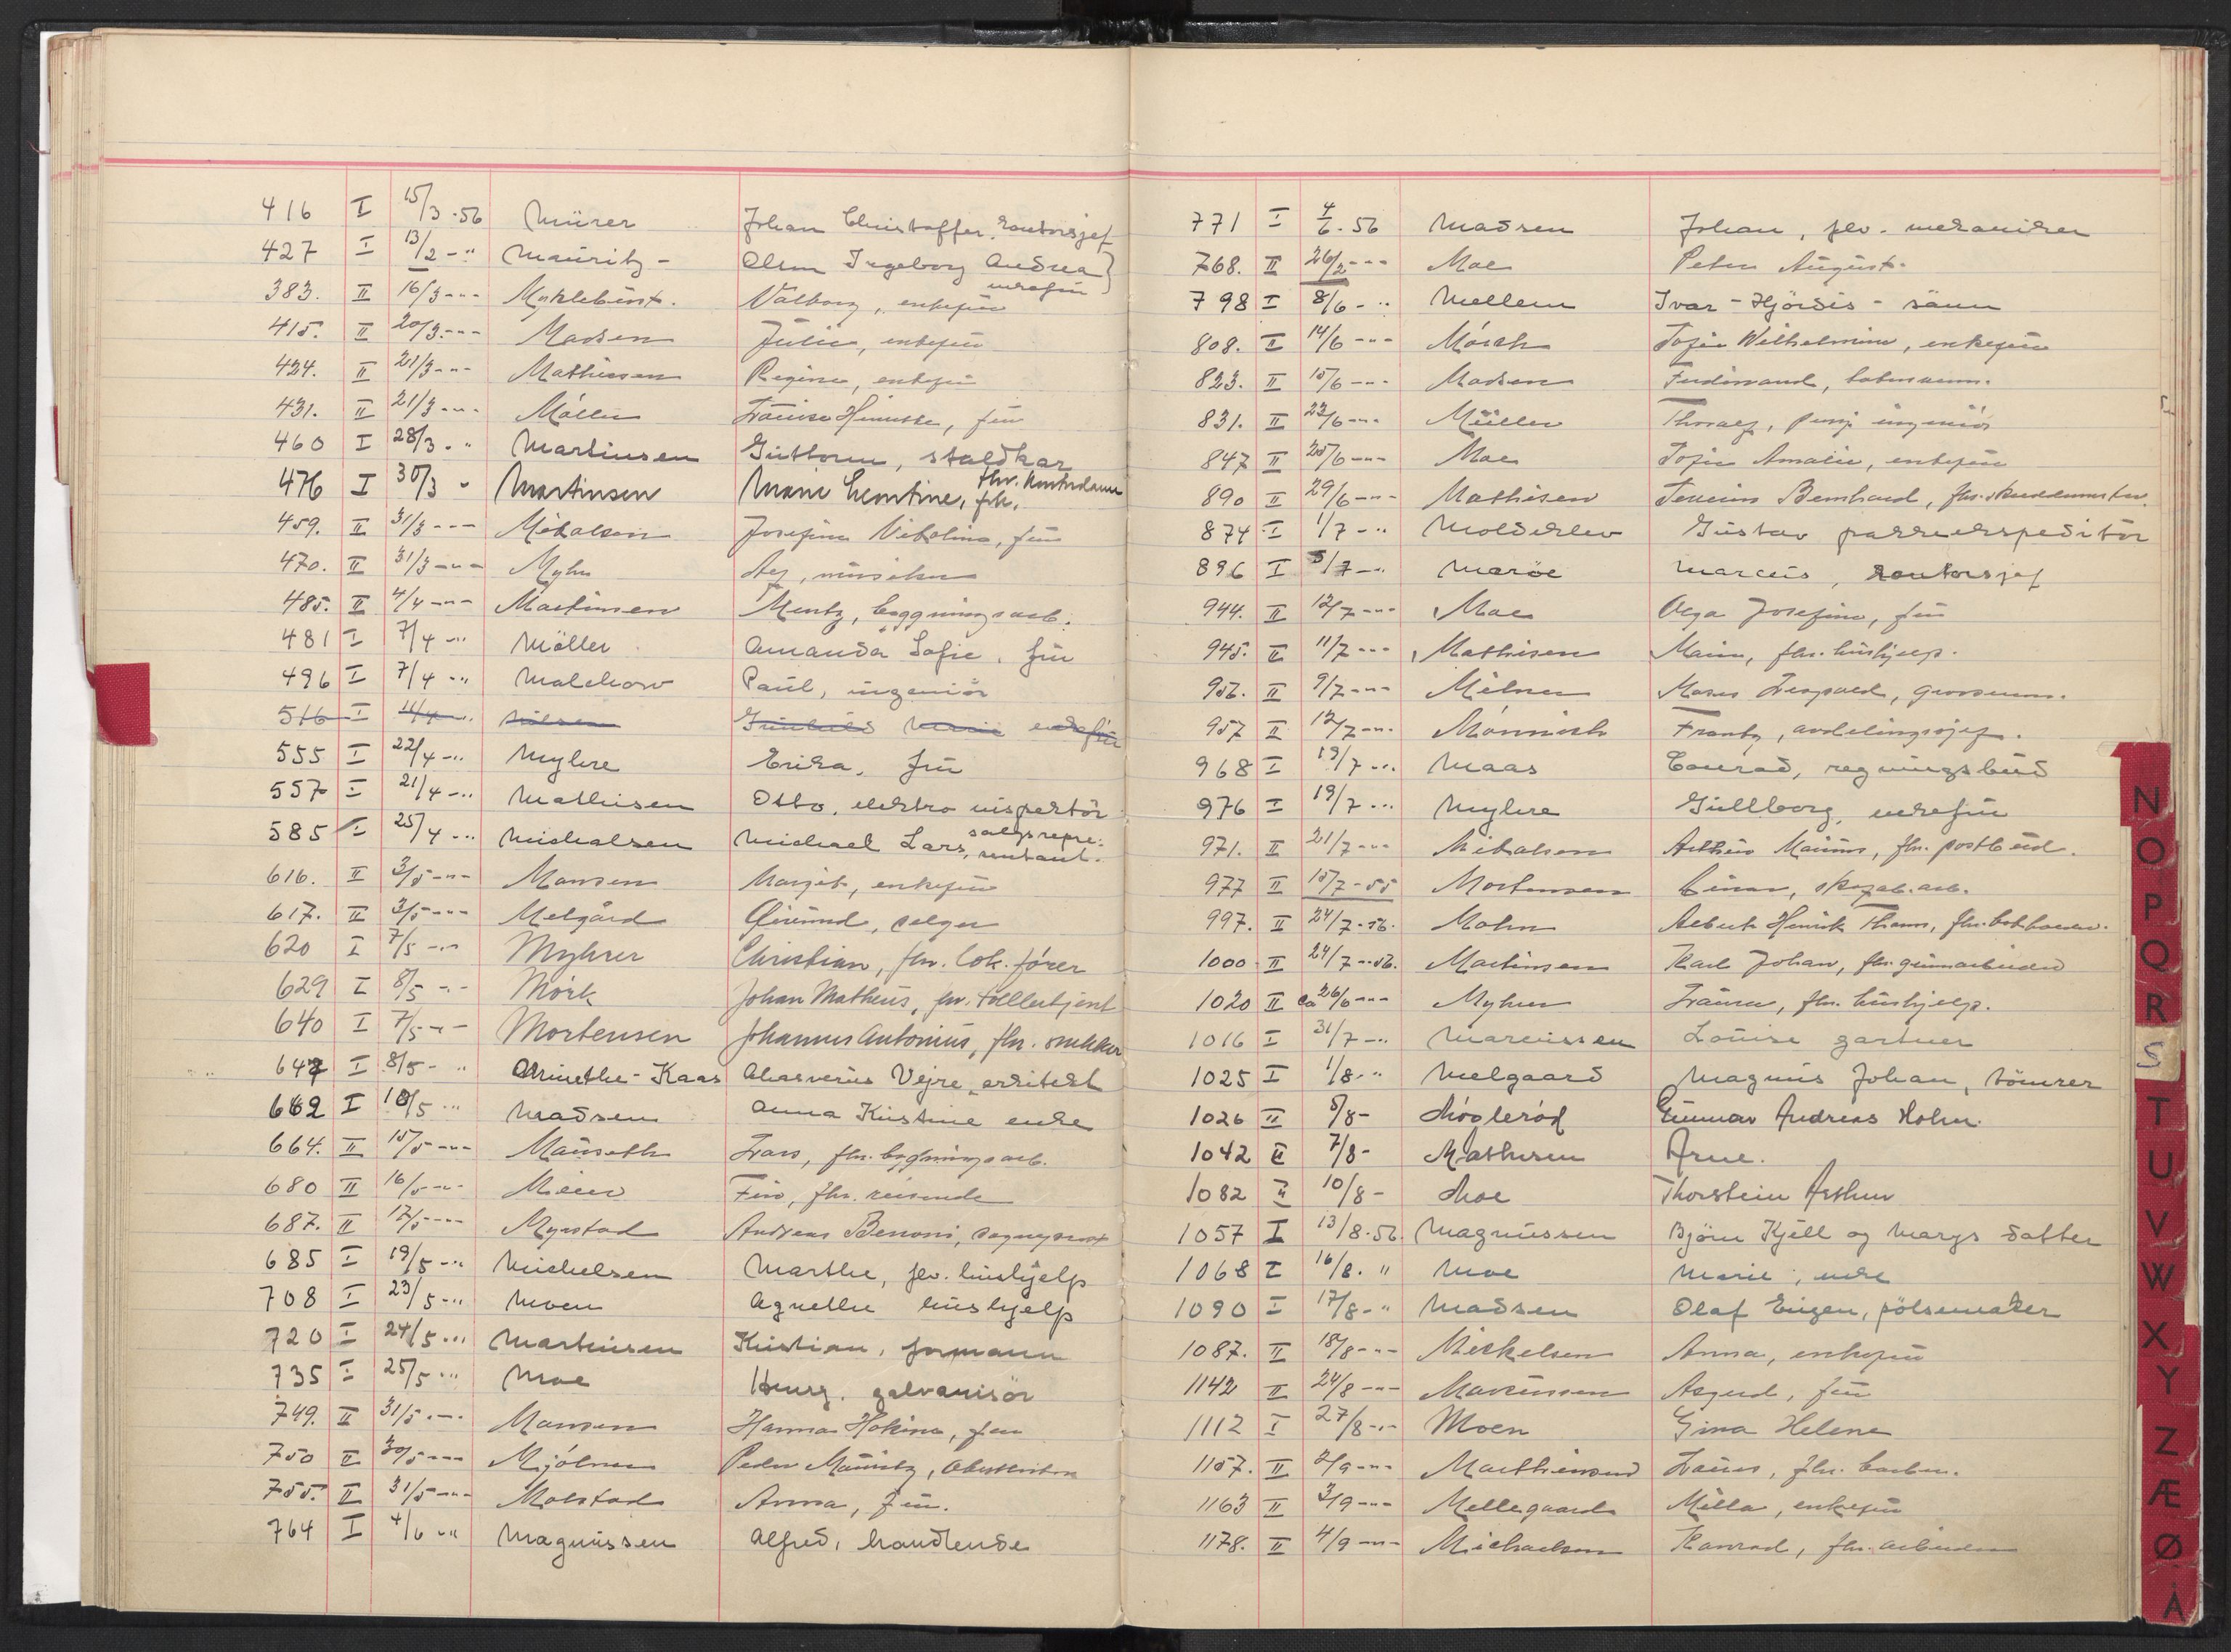 416 I 15/3-56 Mürer Johan Christoffer, kontorsjef
427 I 13/2 -" Mauritz- Olsen Ingeborg Andrea enkefru
383. II 16/3 -"- Myklebust. Valborg, enkefru
415. II 20/3 -"- Madsen Julie, enkefru
424. II 21/3 -"- Mathiesen Regine, enkefru
431. II 21/3 -"- Möller Louise, fru
460 I 28/3 -" Martinsen Guttorm, staldkar
476 I 30/3 " Martinsen Marie Leontine, frk.
459. II 31/3 -"- Mikalsen Josefine Nikoline, fru
470. II 31/3 -"- Myhre Alf, musiker
485. II 4/4 -"- Martinsen Mentz, byggningsarb.
481 I 7/4 -" Möller Amanda Sofie, fru
496 I 7/4 -" Malchow Paul, ingeniör
516 I 11/4 -" Nilsen Gunhild Marie enkefru
555 I 22/4 -" Myhre Erika, fru
557 I 21/4 -" Mathisen Otto, elektro inspektör
585 I 25/4 -" Michalsen Michael Lars, salgsrepresentant.
616. II 3/5 -"- Monsen Margit, enkefru
617. II 3/5 -"- Melgård Øivind, selger
620 I 7/5 -"- Myhrer Christian, fhv. lok. fører
629 I 8/5 -"- Mörk Johan Matheus, fhv. tollbetjent
640 I 7/5 -"- Mortensen Johannes Antonius, fhv. snekker
647 I 8/5 - " Munthe-Kaas Ahasverus Vejre, arkitekt
662 I 10/5 " Madsen Anna Kristine enke
664. II 15/5 -"- Mauseth Lars, fhv. bygningsarb.
680 II 16/5 -"- Meier Finn, fhv. reisende
687. II 17/5 -"- Myrstad Andreas Benoni,
685 I 19/5 -" Michelsen Marthe, fhv. hushjelp
708 I 23/5 -" Moen Agnethe hushjelp
720 I 24/5 -" Martinsen Kristian, formann
735 I 25/5 -" Moe Henry, galvanisör
749. II 31/5 -"- Monsen Hanna Hokine, fru
750 II 30/5 -"- Mjölner Peder Mauritz,
755. II 31/5 -"- Molstad Anna, fru.
764 I 4/6 -" Magnussen Alfred, handlende
771 I 4/6-56 Madsen Johan, fhv. mekaniker
768. II 26/2 -"- Moe Peter August.
798 I 8/6 -" Mellem Ivar - Hjördis - sönn
808. II 14/6 -"- Mörch Sofie Wilhelmine, enkefru
823. II 15/6 -"- Madsen Ferdinand,
831. II 23/6 -"- Müller Thoralf, ingeniör
847 II 25/6 -"- Moe Sofie Amalie, enkefru
890 II 29/6 -"- Mathisen Bernhard, fhv.
874 I 1/7 -" Molderlev Gustav pakkekspeditör
896 I 5/7 -" Maröe Marcus, kontorsjef
944. II 12/7 -"- Moe Olga Josefine, fru
945. II 11/7 -"- Mathisen Marie, fhv. hushjelp.
956. II 9/7 -"- Milner Moses Leopold, grosserer.
957 II 12/7 -"- Mönnich Frantz, avdelingssjef.
968 I 19/7 -" Maas Conrad, regningsbud
976 I 19/7 -" Myhre Gullborg, enkefru
971. II 21/7 -"- Mikalsen Arthur Marius, fhv. postbud.
977 II 15/7-55 Mortensen Einar, skogsarb.
997. II 24/7-56. Mohn Albert Henrik Thams, fhv.
1000 II 24/7-56. Martinsen Karl Johan, fhv. gruvearbeider
1020 II ca 26/6 -"- Myhrer Laura, fhv. hushjelp.
1016 I 31/7 -" Marcussen Louise gartner
1025 I 1/8 -" Melgaard Magnus Johan, tömrer
1026 II 5/8 - Möglerød Gunnar Andreas Holm.
1042 II 7/8 - Mathisen Arne.
1082 II 10/8 - Moe Thorstein Arthur
1057 I 13/8-56. Magnussen Björn Kjell og Margs datter
1068 I 16/8. " Moe Marie, enke
1090 I 17/8 -" Madsen Olaf Eugen, pölsemaker
1087. II 18/8 -"- Mickelsen Anna, enkefru
1142 II 24/8 -"- Markussen Asgerd, fru
1112 I 27/8 -"- Moen Gina Helene
1157. II 2/9 -"- Mathiesen Laurits, fhv.
1163 II 3/9 -"- Mellegaard Milla, enkefru
1178. II 4/9 -"- Michaelsen Konrad, fhv. arbeider
N
O
P
Q
R
S
T
U
V
W
X
Y
Z
Æ
Ø
Å